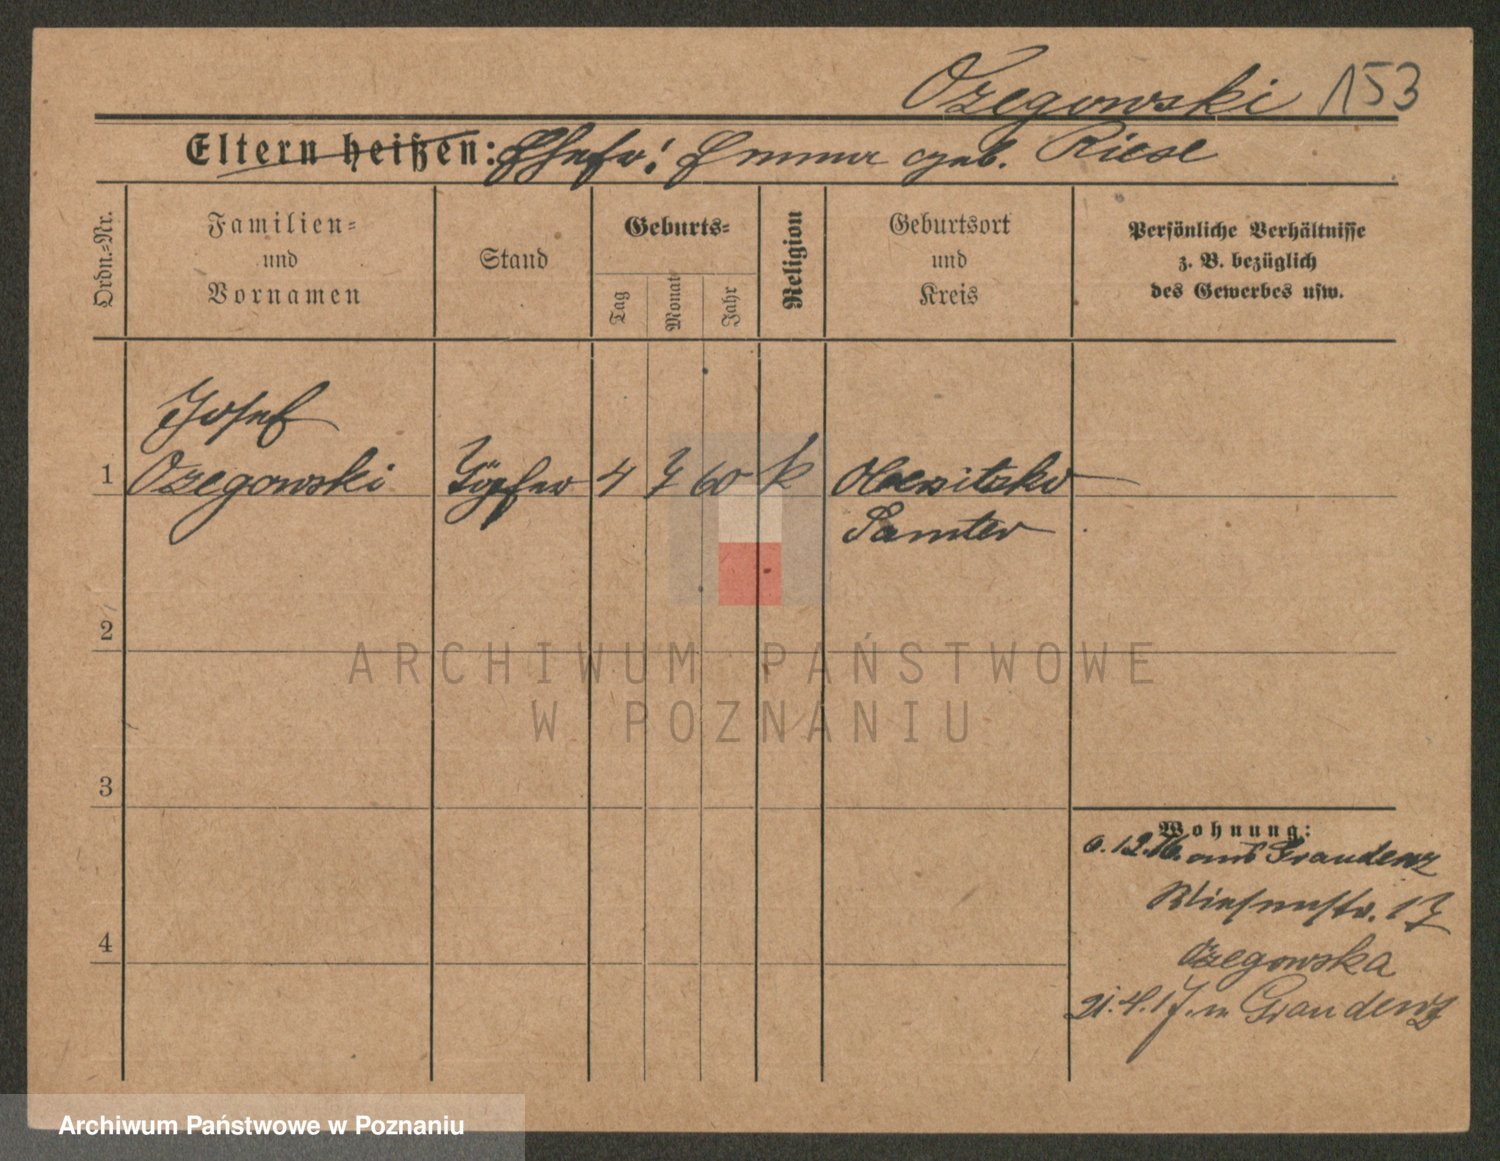 Ozegowski 153
Eltern heißen: Ehefr: Emma geb. Riese
Ordn.-Nr.
Familien-
und
Vornamen
Stand
Geburts-
Tag
Monat
Jahr
Religion
Geburtsort
und
Kreis
Persönliche Verhältnisse
z. B. bezüglich
des Gewerbes usw.
Josef
1 Ozegowski Töpfer 4 3 60 k Obersitzko
Samter
2
3
4
Wohnung:
6.12.16. aus Graudenz
Wiesenstr. 17
Ozegowska
21.4.17. n Graudenz
ARCHIWUM PAŃSTWOWE
W POZNANIU
Archiwum Państwowe w Poznaniu